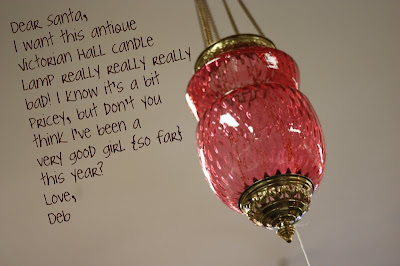 Dear Santa,
I want this antique
Victorian Hall candle
Lamp really really really
bad! I know it's a bit
Pricey, but Don't you
think I've been a
very good girl {so far}
this year?
Love,
Deb